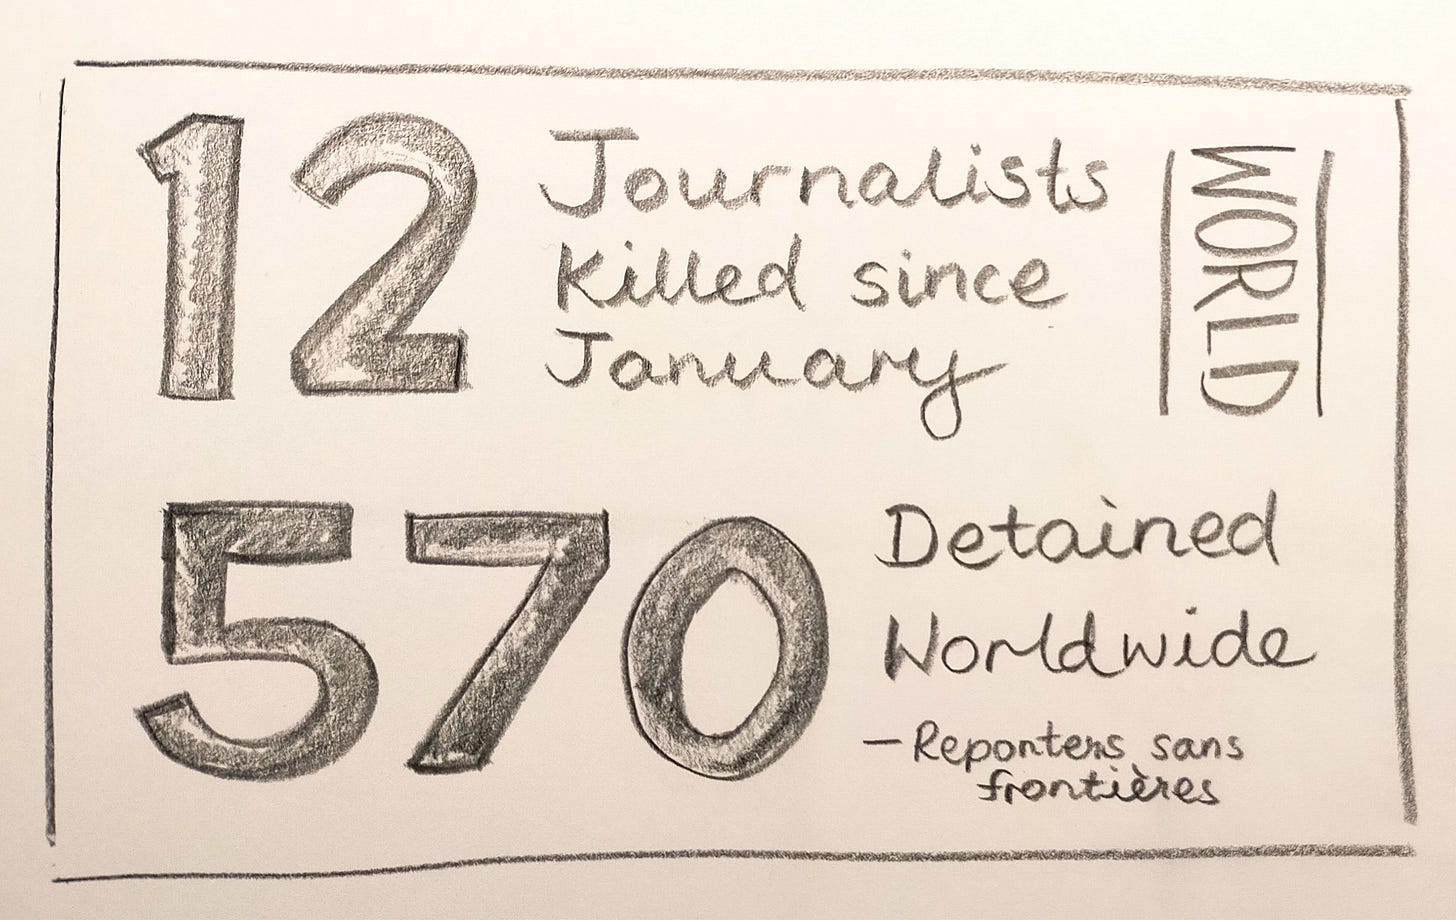 12
Journalists
Killed since
January
WORLD
570
Detained
Worldwide
— Reporters sans
frontières